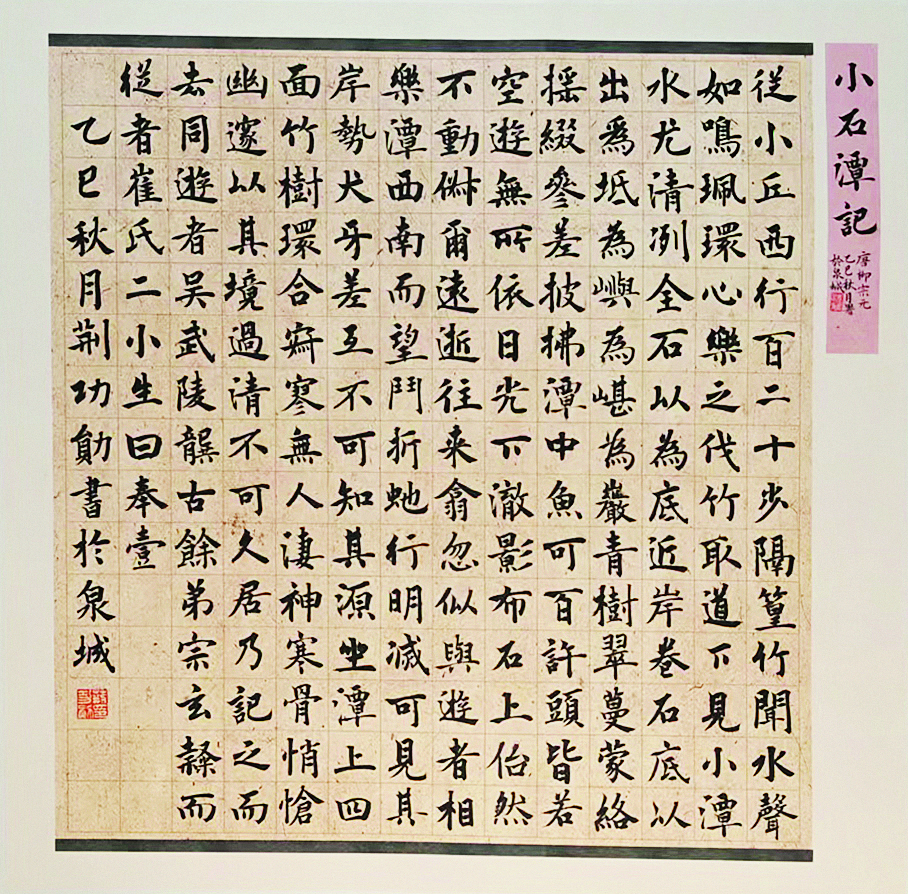 小石潭記
唐柳宗元
乙巳秋月書
於泉城
從小丘西行百二十步隔篁竹聞水聲
如鳴珮環心樂之伐竹取道下見小潭
水尤清冽全石以為底近岸卷石底以
出爲坻為嶼為嵁為巖青樹翠蔓蒙絡
揺綴參差披拂潭中魚可百許頭皆若
空遊無所依日光下澈影布石上佁然
不動俶爾遠逝往来翕忽似與遊者相
樂潭西南而望鬥折虵行明滅可見其
岸勢犬牙差互不可知其源坐潭上四
面竹樹環合寂寥無人淒神寒骨悄愴
幽邃以其境過清不可久居乃記之而
去同遊者吳武陵龔古餘弟宗玄隸而
從者崔氏二小生曰奉壹
乙巳秋月荆功勛書於泉城